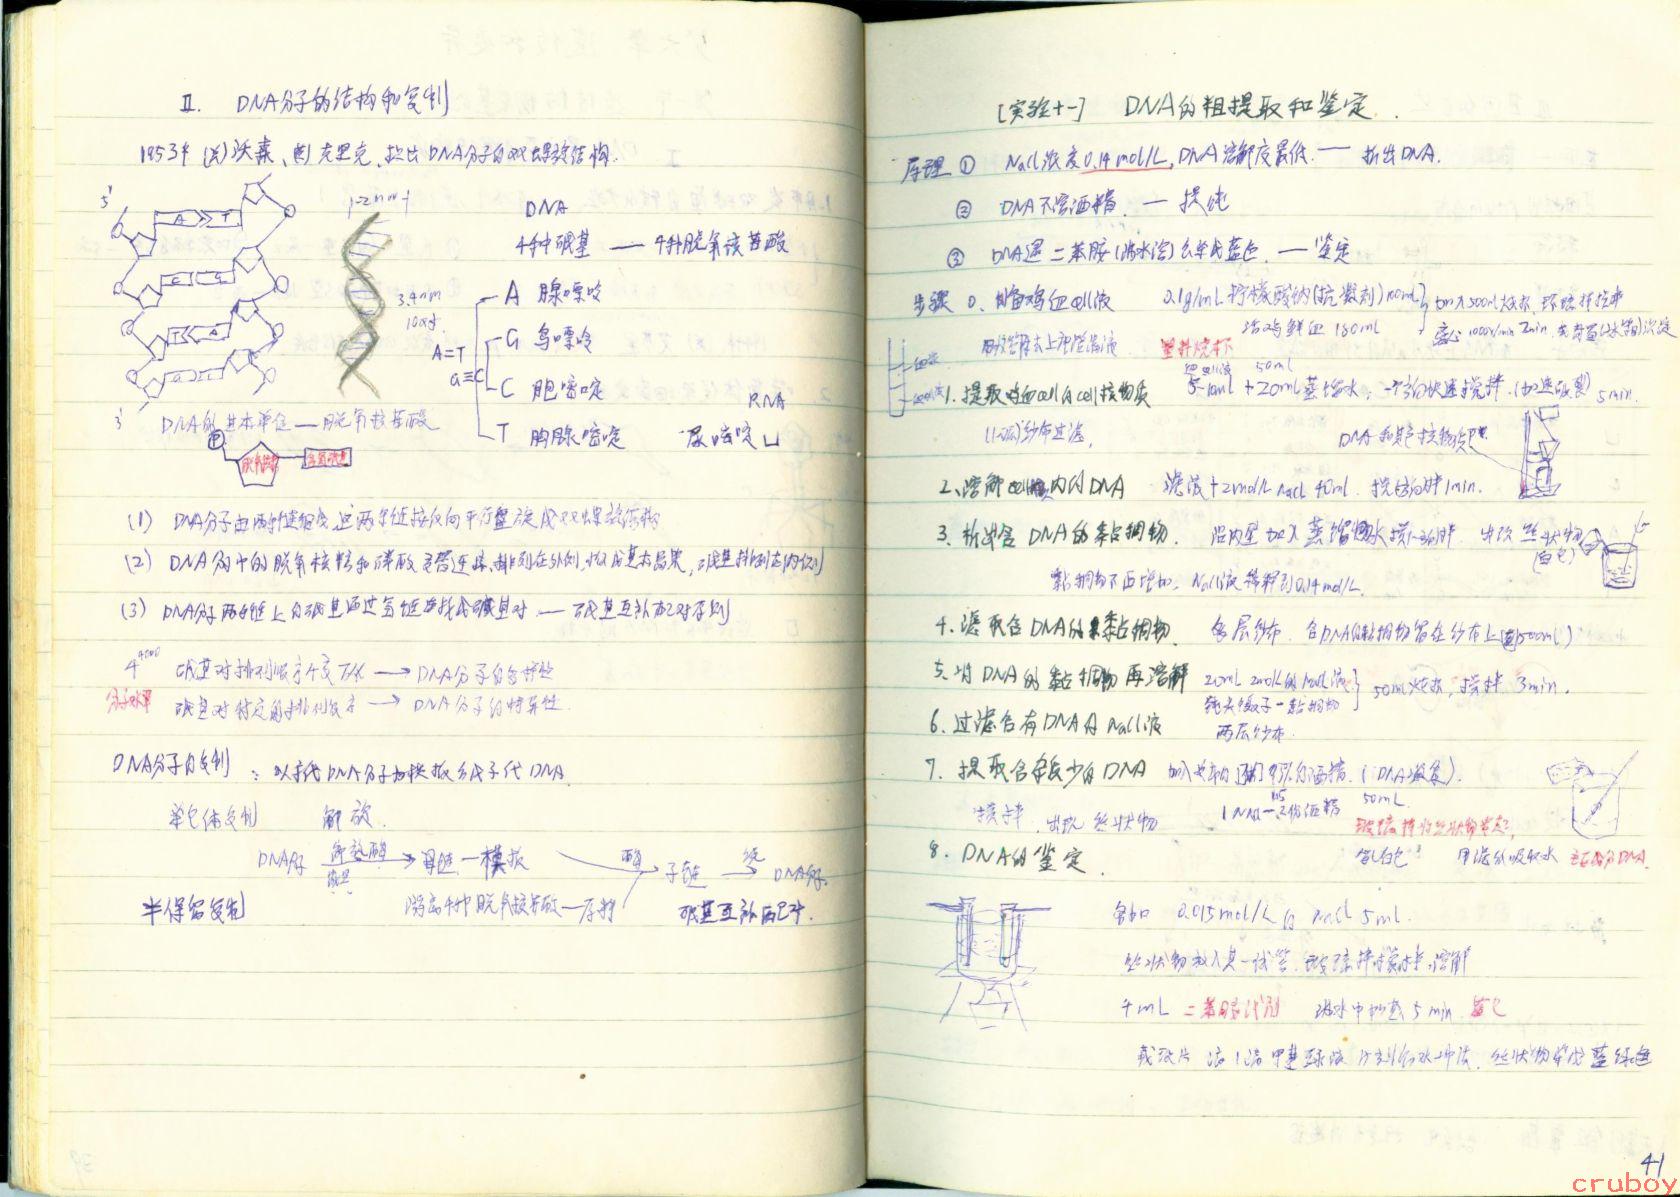 II. DNA分子的结构和复制
1953年 (美)沃森、(英)克里克、提出DNA分子的双螺旋结构.
5'
2nm
A T
3.4nm
10对.
3'
DNA
4种碱基 —— 4种脱氧核苷酸
A 腺嘌呤
G 鸟嘌呤
C 胞嘧啶
T 胸腺嘧啶
A=T
G≡C
RNA
尿嘧啶 U
DNA的基本单位—脱氧核苷酸
P
脱氧核糖
含氮碱基
(1) DNA分子由两条链组成 这两条链按反向平行盘旋成双螺旋结构
(2) DNA分子中的脱氧核糖和磷酸交替连接,排列在外侧,构成基本骨架,碱基排列在内侧
(3) DNA分子两条链上的碱基通过氢键连接成碱基对 — 碱基互补配对原则
4^4000 碱基对排列顺序千变万化 → DNA分子的多样性
分子水平 碱基对特定的排列顺序 → DNA分子的特异性.
DNA分子的复制 : 以亲代DNA分子为模板合成子代DNA
半保留复制
DNA分子 解旋酶 → 母链—模板 酶 → 子链 → DNA分子.
游离4种脱氧核苷酸—原料 碱基互补配对.
[实验十一] DNA的粗提取和鉴定.
原理 ① NaCl浓度0.14mol/L,DNA溶解度最低.— 析出DNA.
② DNA不溶酒精. — 提纯
③ DNA遇二苯胺(沸水浴)会染成蓝色. — 鉴定
步骤 0. 制备鸡血cell液 0.1g/mL柠檬酸钠(抗凝剂)100mL
活鸡鲜血 180ml
加入500ml烧杯,玻璃棒搅拌
离心1000r/min 2min
用吸管除去上部澄清液 塑料烧杯
1. 提取鸡血cell的cell核物质 5-10ml + 20mL蒸馏水, 一个方向快速搅拌.(加速破裂) 5min.
50ml
纱布过滤,
DNA和其它核物质
2. 溶解cell核内的DNA 滤液+2mol/L NaCl 40ml. 搅拌1min.
3. 析出含DNA的黏稠物. 沿内壁加入蒸馏水 搅拌 出现丝状物
(白色)
黏稠物不再增加. NaCl液稀释到0.14mol/L.
4. 滤取含DNA的黏稠物. 多层纱布. 含DNA的黏稠物留在纱布上(500ml)
5. 将DNA的黏稠物再溶解 20mL 2mol/L的NaCl液
钝头镊子—黏稠物
50ml烧杯, 搅拌3min.
6. 过滤含有DNA的NaCl液 两层纱布.
7. 提取含杂质少的DNA 加入冷却的95%的酒精.(DNA凝集).
50mL.
搅拌. 出现丝状物
乳白色 用滤纸吸取水
8. DNA的鉴定.
各加 0.015mol/L的NaCl 5mL.
丝状物放入其一试管,玻璃棒搅拌,溶解
4mL 二苯胺试剂 沸水中加热5min. 蓝色
载玻片 滴1滴甲基绿液 蓝绿色
41
cruboy